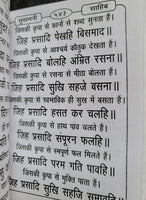 सुखमनी १४३ साहिब
जिसकी कृपा से कानों से शब्द सुनता है।
जिह प्रसादि पेखहि बिसमाद ॥
जिसकी कृपा से आश्चर्य कौतुक देखता है।
जिह प्रसादि बोलहि अंम्रित रसना ॥
जिसकी कृपा से रसना से मीठा बोलता है।
जिह प्रसादि सुखि सहजे बसना ॥
जिसकी कृपा से स्वभाविक ही सुख में बसता है।
जिह प्रसादि हसत कर चलहि ॥
जिसकी कृपा से हाथ पांव चलते हैं।
जिह प्रसादि संपूरन फलहि ॥
जिसकी कृपा से सम्पूर्ण फल मिलते हैं।
जिह प्रसादि परम गति पावहि ॥
जिसकी कृपा से मुक्ति पाता है।
जिह प्रसादि सुखि सहजि समावहि ॥